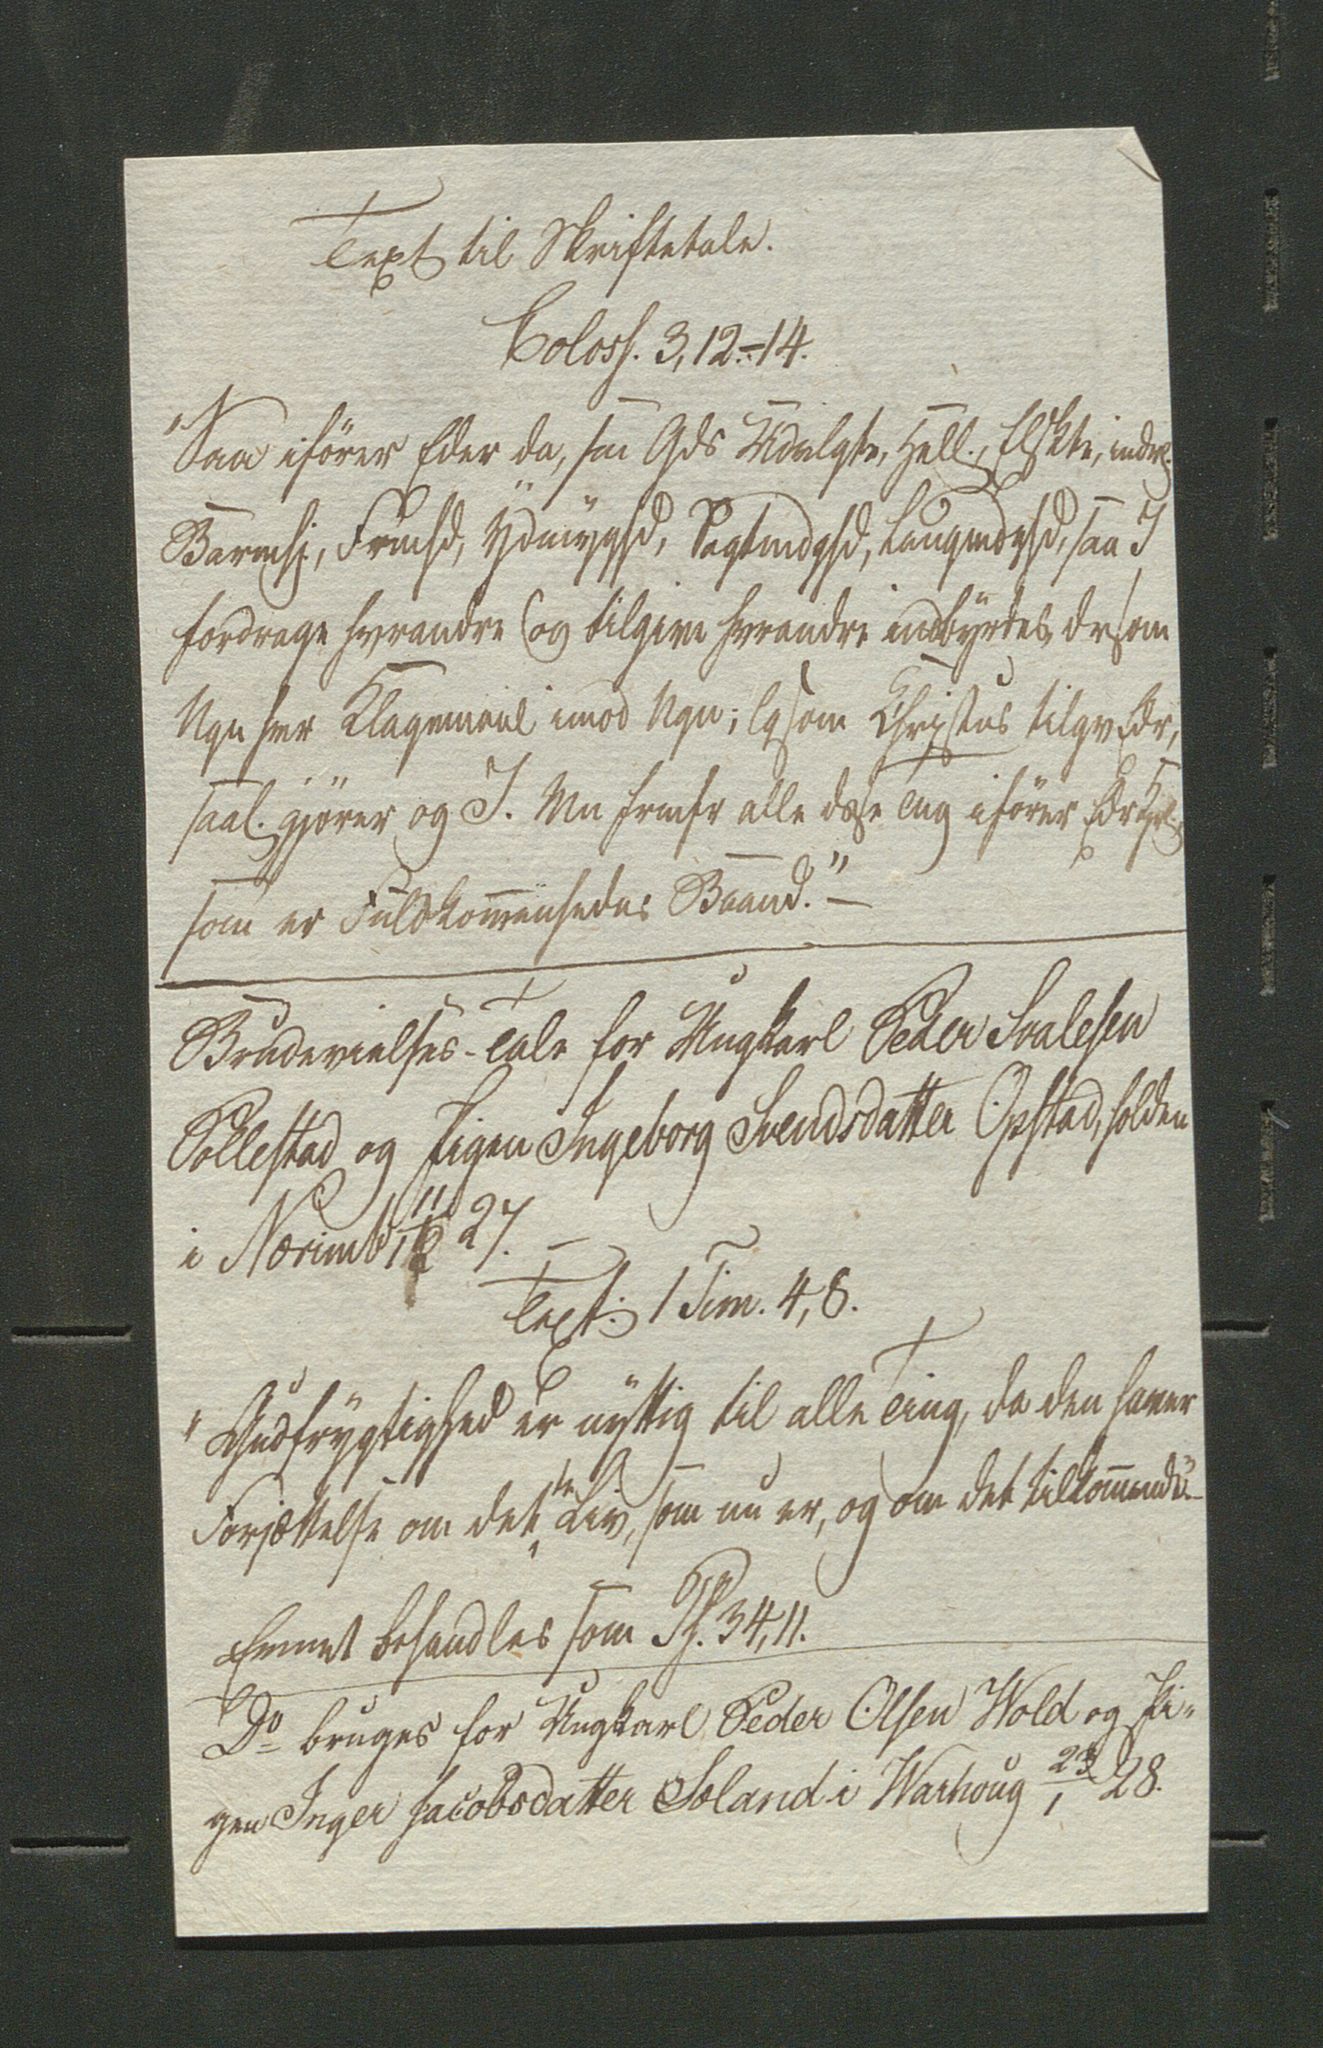 Text til Skriftetale.
Coloss. 3, 12.-14.
"Saa ifører Eder da, som Gds Udvlgte, Hell., Elskte, indrl.
Barmhj., Frmhd, Ydmyghd, Sagtmdghd, Langmdghd, saa I
fordrage hvrandre og tilgive hvrandre indbÿrdes, drsom
Ngn hvr Klagemaal imod Ngn; lgsom Christus tilgv Edr,
saal. gjører og I. Mn frmfr alle disse Tng ifører Edr Kjrl.
som er Fuldkommenhedes Baand." –
Brudevielses-Tale for Ungkarl Peder Svalesen
Pollestad og Pigen Ingeborg Svendsdatter Opstad, holden
i Nærimb 11/12 27. –
Text: 1 Tim. 4, 8.
"Gudfrygtighed er nyttig til alle Ting, da den haver
Forjættelse om det Liv, som nu er, og om det tilkommende". –
Emnet behandles som Ps. 34, 11.
Do bruges for Ungkarl Peder Olsen Wold og Pi-
gen Inger Jacobsdatter Søland i Warhoug 23/1 28.